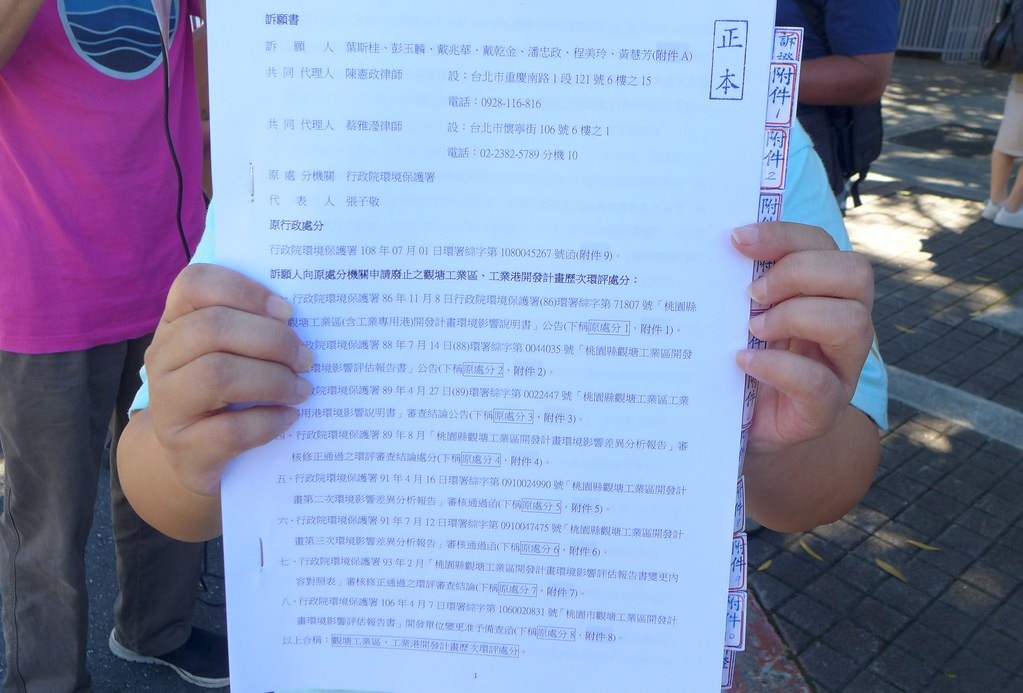 訴願書
正本
訴願人 葉斯桂、彭玉麟、戴兆華、戴乾金、潘忠政、程美玲、黃慧芳(附件 A)
共同代理人 陳憲政律師 設：台北市重慶南路 1 段 121 號 6 樓之 15
電話：0928-116-816
共同代理人 蔡雅瀅律師 設：台北市懷寧街 106 號 6 樓之 1
電話：02-2382-5789 分機 10
原處分機關 行政院環境保護署
代表人 張子敬
原行政處分
行政院環境保護署 108 年 07 月 01 日環署綜字第 1080045267 號函(附件 9)。
訴願人向原處分機關申請廢止之觀塘工業區、工業港開發計畫歷次環評處分：
、行政院環境保護署 86 年 11 月 8 日行政院環境保護署(86)環署綜字第 71807 號「桃園縣
觀塘工業區(含工業專用港)開發計畫環境影響說明書」公告(下稱原處分 1，附件 1)。
政院環境保護署 88 年 7 月 14 日(88)環署綜字第 0044035 號「桃園縣觀塘工業區開發
環境影響評估報告書」公告(下稱原處分 2，附件 2)。
政院環境保護署 89 年 4 月 27 日(89)環署綜字第 0022447 號「桃園縣觀塘工業區工業
用港環境影響說明書」審查結論公告(下稱原處分 3，附件 3)。
四、行政院環境保護署 89 年 8 月「桃園縣觀塘工業區開發計畫環境影響差異分析報告」審
核修正通過之環評審查結論處分(下稱原處分 4，附件 4)。
五、行政院環境保護署 91 年 4 月 16 日環署綜字第 0910024990 號「桃園縣觀塘工業區開發計
畫第二次環境影響差異分析報告」審核通過函(下稱原處分 5，附件 5)。
六、行政院環境保護署 91 年 7 月 12 日環署綜字第 0910047475 號「桃園縣觀塘工業區開發計
畫第三次環境影響差異分析報告」審核通過函(下稱原處分 6，附件 6)。
七、行政院環境保護署 93 年 2 月「桃園縣觀塘工業區開發計畫環境影響評估報告書變更內
容對照表」審核修正通過之環評審查結論(下稱原處分 7，附件 7)。
八、行政院環境保護署 106 年 4 月 7 日環署綜字第 1060020831 號「桃園市觀塘工業區開發計
畫環境影響評估報告書」開發單位變更准予備查函(下稱原處分 8，附件 8)。
以上合稱：觀塘工業區、工業港開發計畫歷次環評處分。
1
訴
附件1
附件2
附件
附件